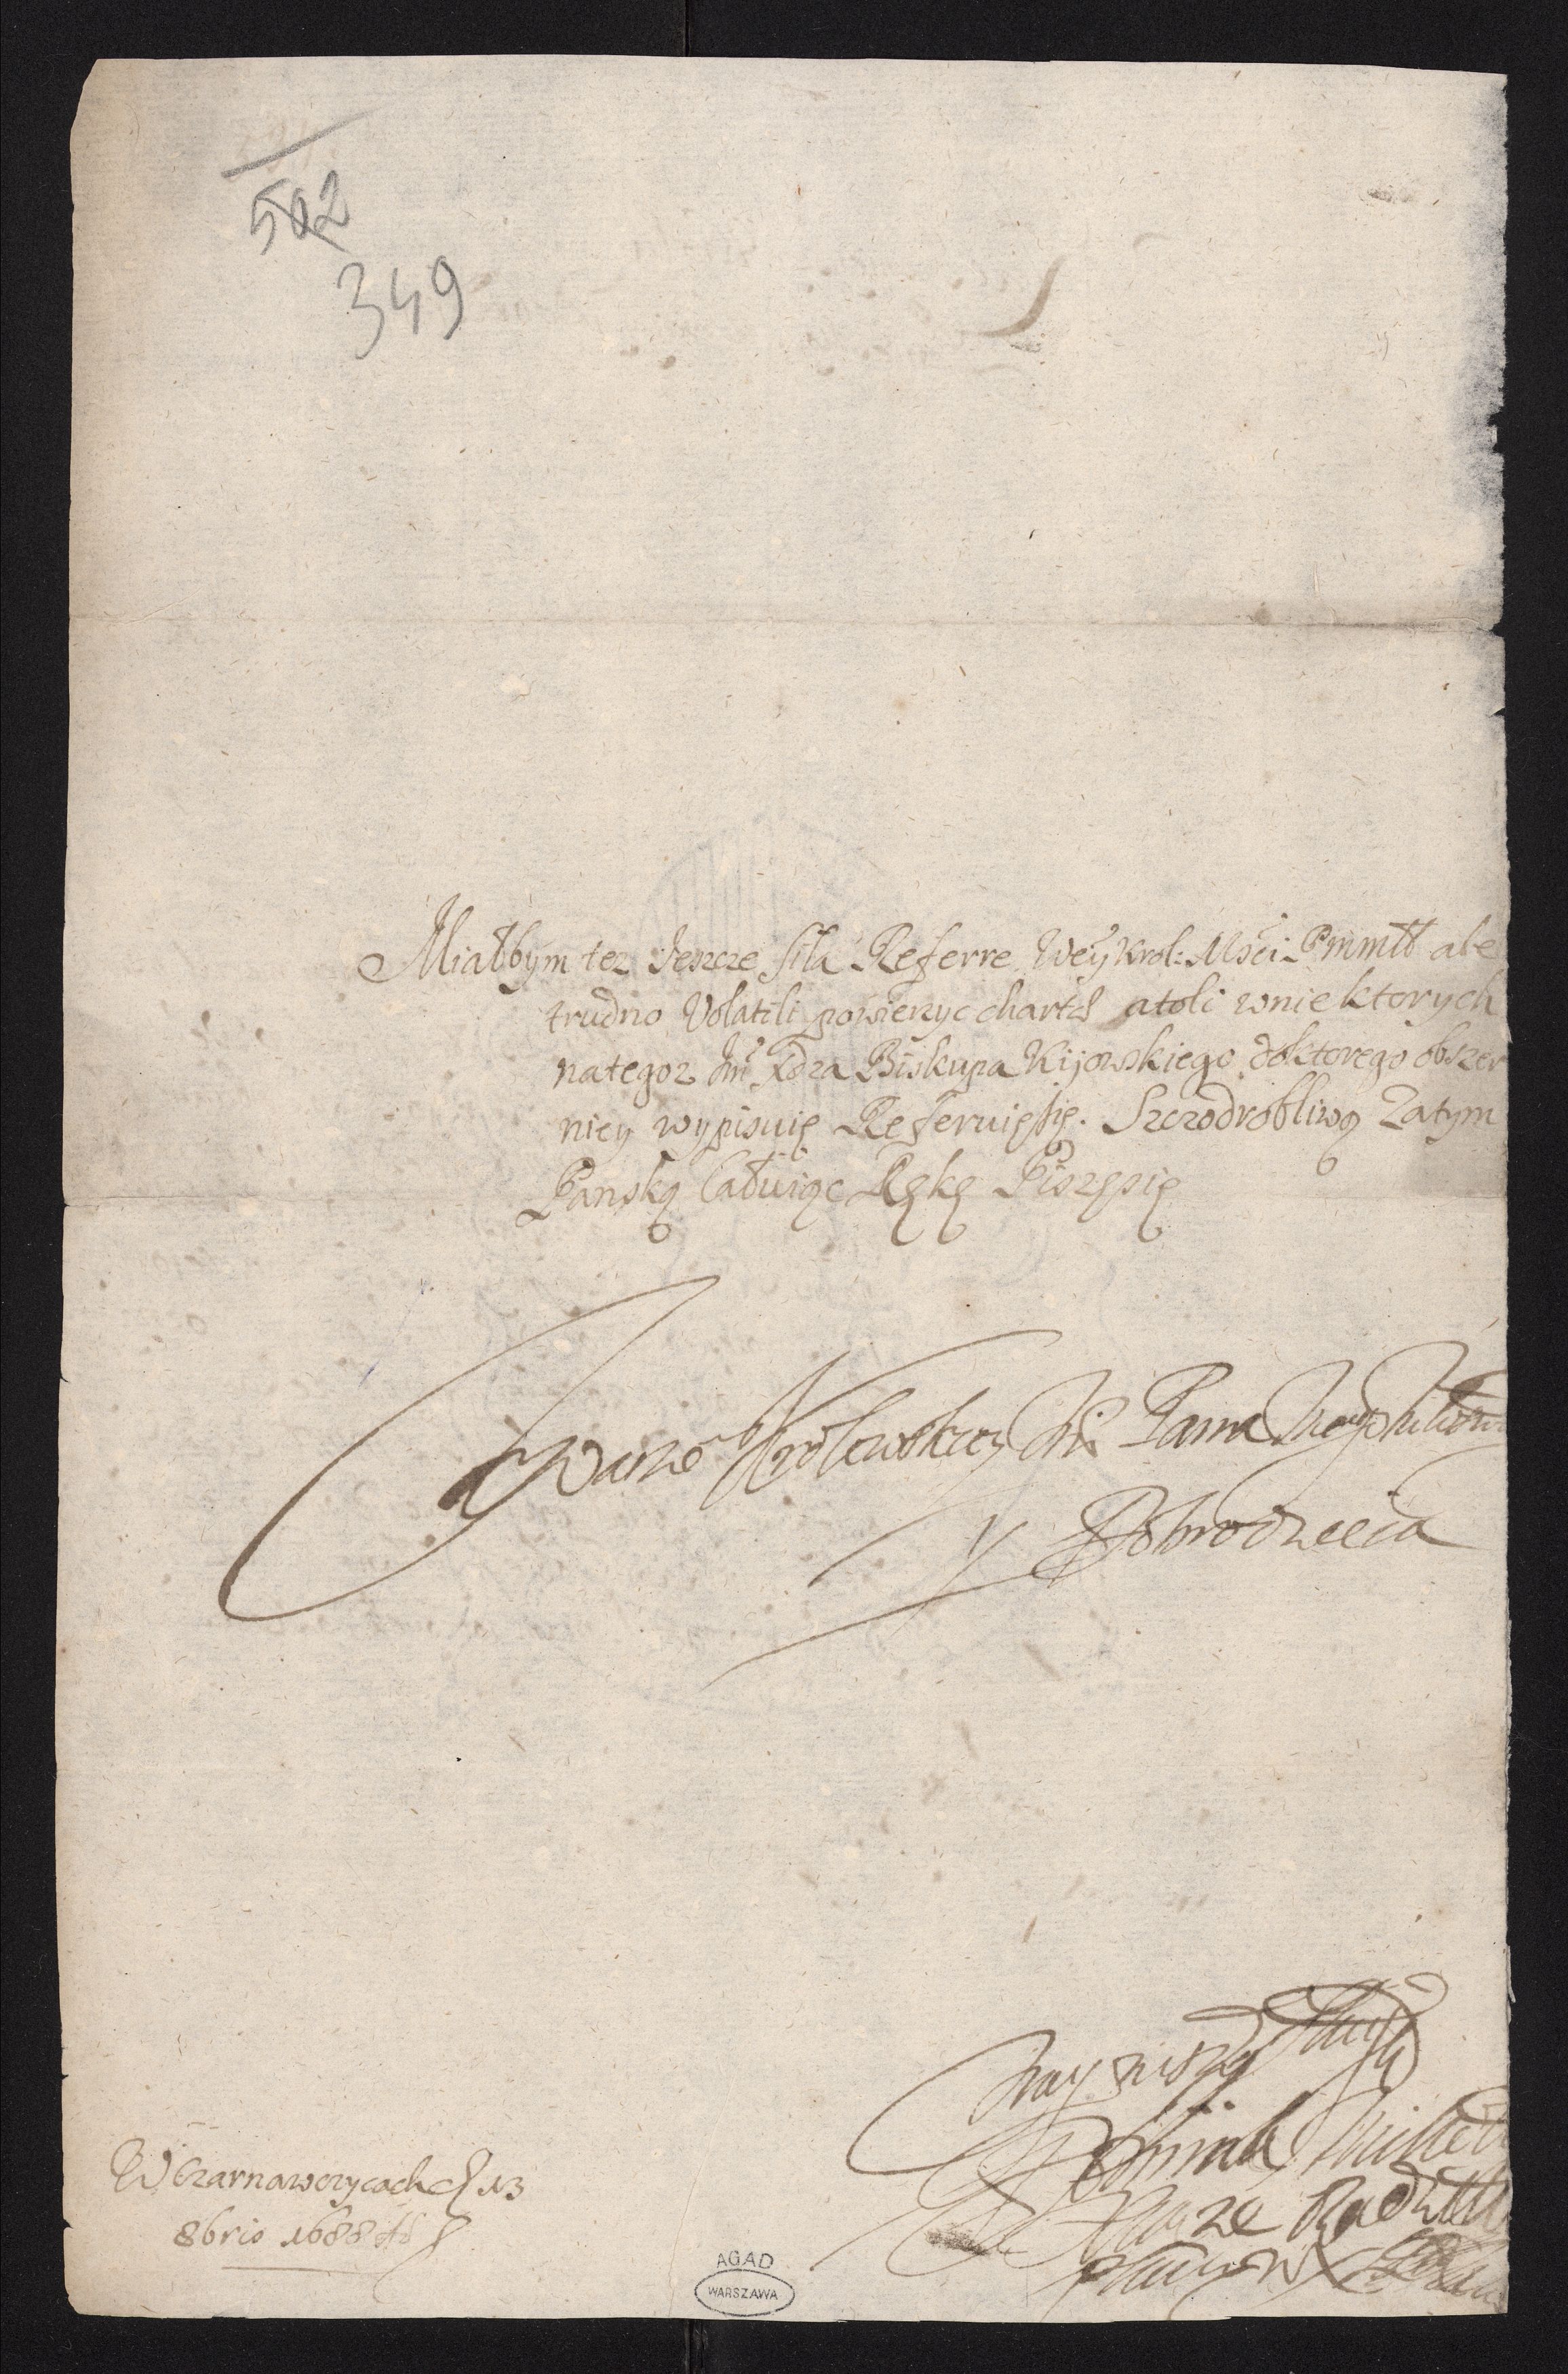 502
349
Miałbym tez Jescze siła Referre Wey Krol: Mści Pmmłł ale
trudno Volatili powierzyc charta atoli w niektorych
na tegoz Jm Xdza Biskupa Kijowskiego do ktorego obszer
niey wypisuię Referuię się. Szczodrobliwą Zatym
Panską Całuiąc Rękę Piszę się
Waszey Krolewskiey Mści Pana Meo
y Dobrodzieia
Nayniszy sługa
Dominik Mikołay
Xiąze Radziwił
W Czarnawczycach d 13
8brio 1688
AGAD
WARSZAWA